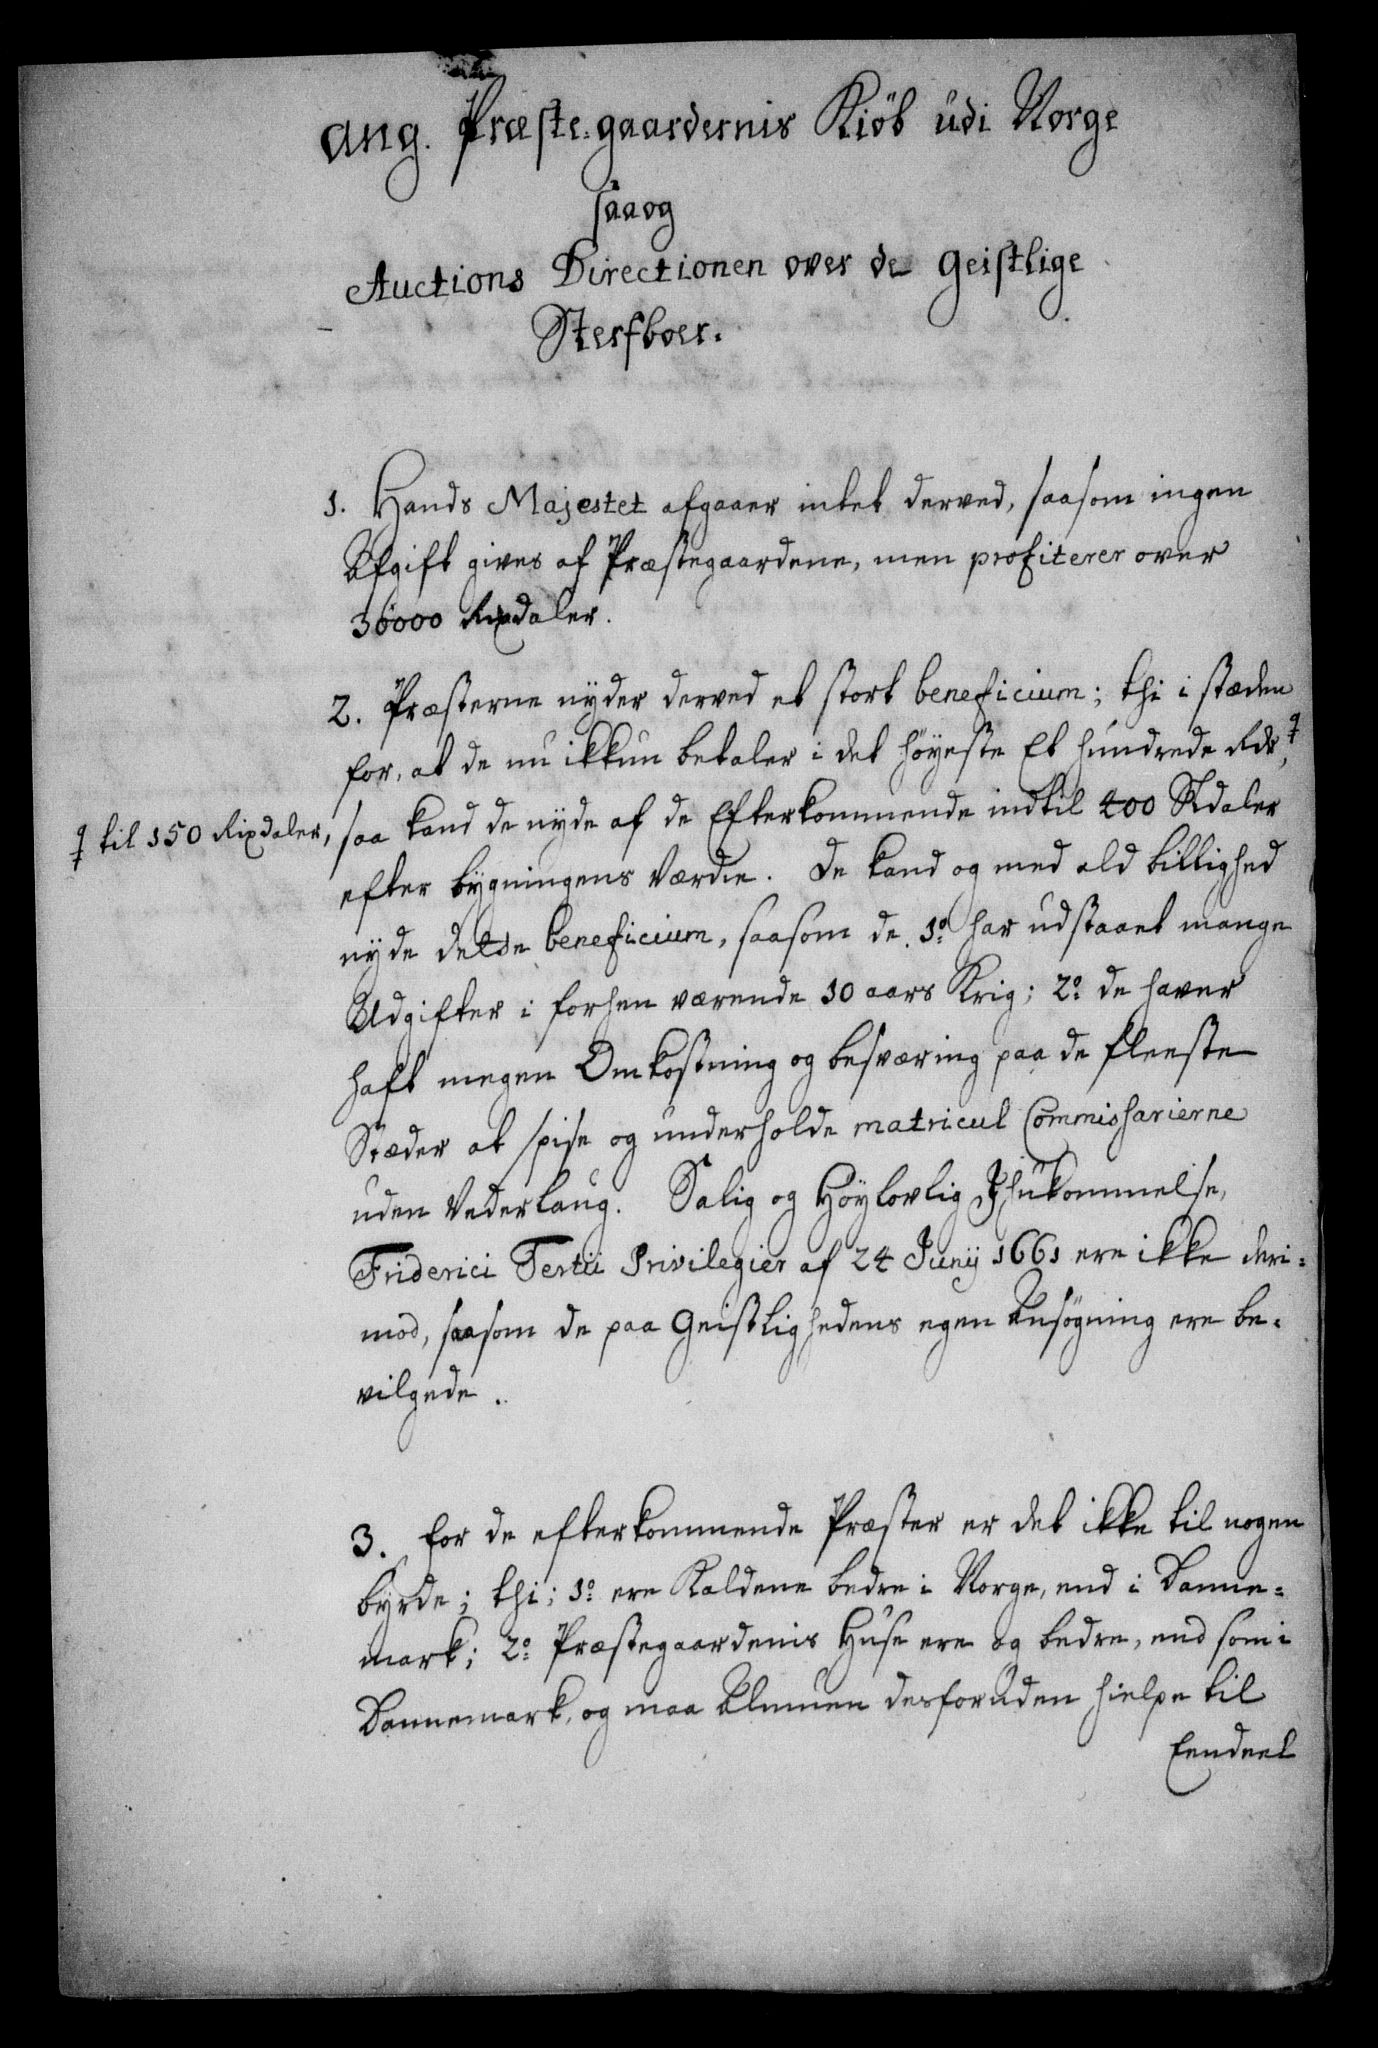 ang. Præste-gaardernis Kiöb udi Norge
saa og
Auctions Directionen over de Geistlige
Sterfboer.
1. Hands Majestet afgaaer intet derved, saasom ingen
Afgift gives af Præstegaardene, men profiterer over
30000 Rixdaler.
2. Præsterne nyder derved et stort beneficium; thi i stæden
for, at de nu ikkun betaler i det höyeste Et hundrede Rdr ‡,
‡ til 150 Rixdaler,
saa kand de nyde af de Efterkommende indtil 400 Rdaler
efter bygningens Værdie. De kand og med ald billighed
nyde dette beneficium, saasom de 1º har udstaaet mange
Udgifter i forhen værende 10 aars Krig; 2º de haver
haft megen Omkostning og besværing paa de fleeste
Stæder at spise og underholde matricul Commissarierne
uden Vederlaug. Salig og Höylovlig Ihukommelse,
Friderici Tertii Privilegier af 24 Junij 1661 ere ikke deri-
mod, saasom de paa Geistlighedens egen Ansøgning ere be-
vilgede.
3. For de efterkommende Præster er det ikke til nogen
byrde; thi; 1º ere Kaldene bedre i Norge, end i Danne-
mark; 2º Præstegaardenis Huse ere og bedre, end som i
Dannemark, og maa Almuen desforuden hielpe til
Eendeel